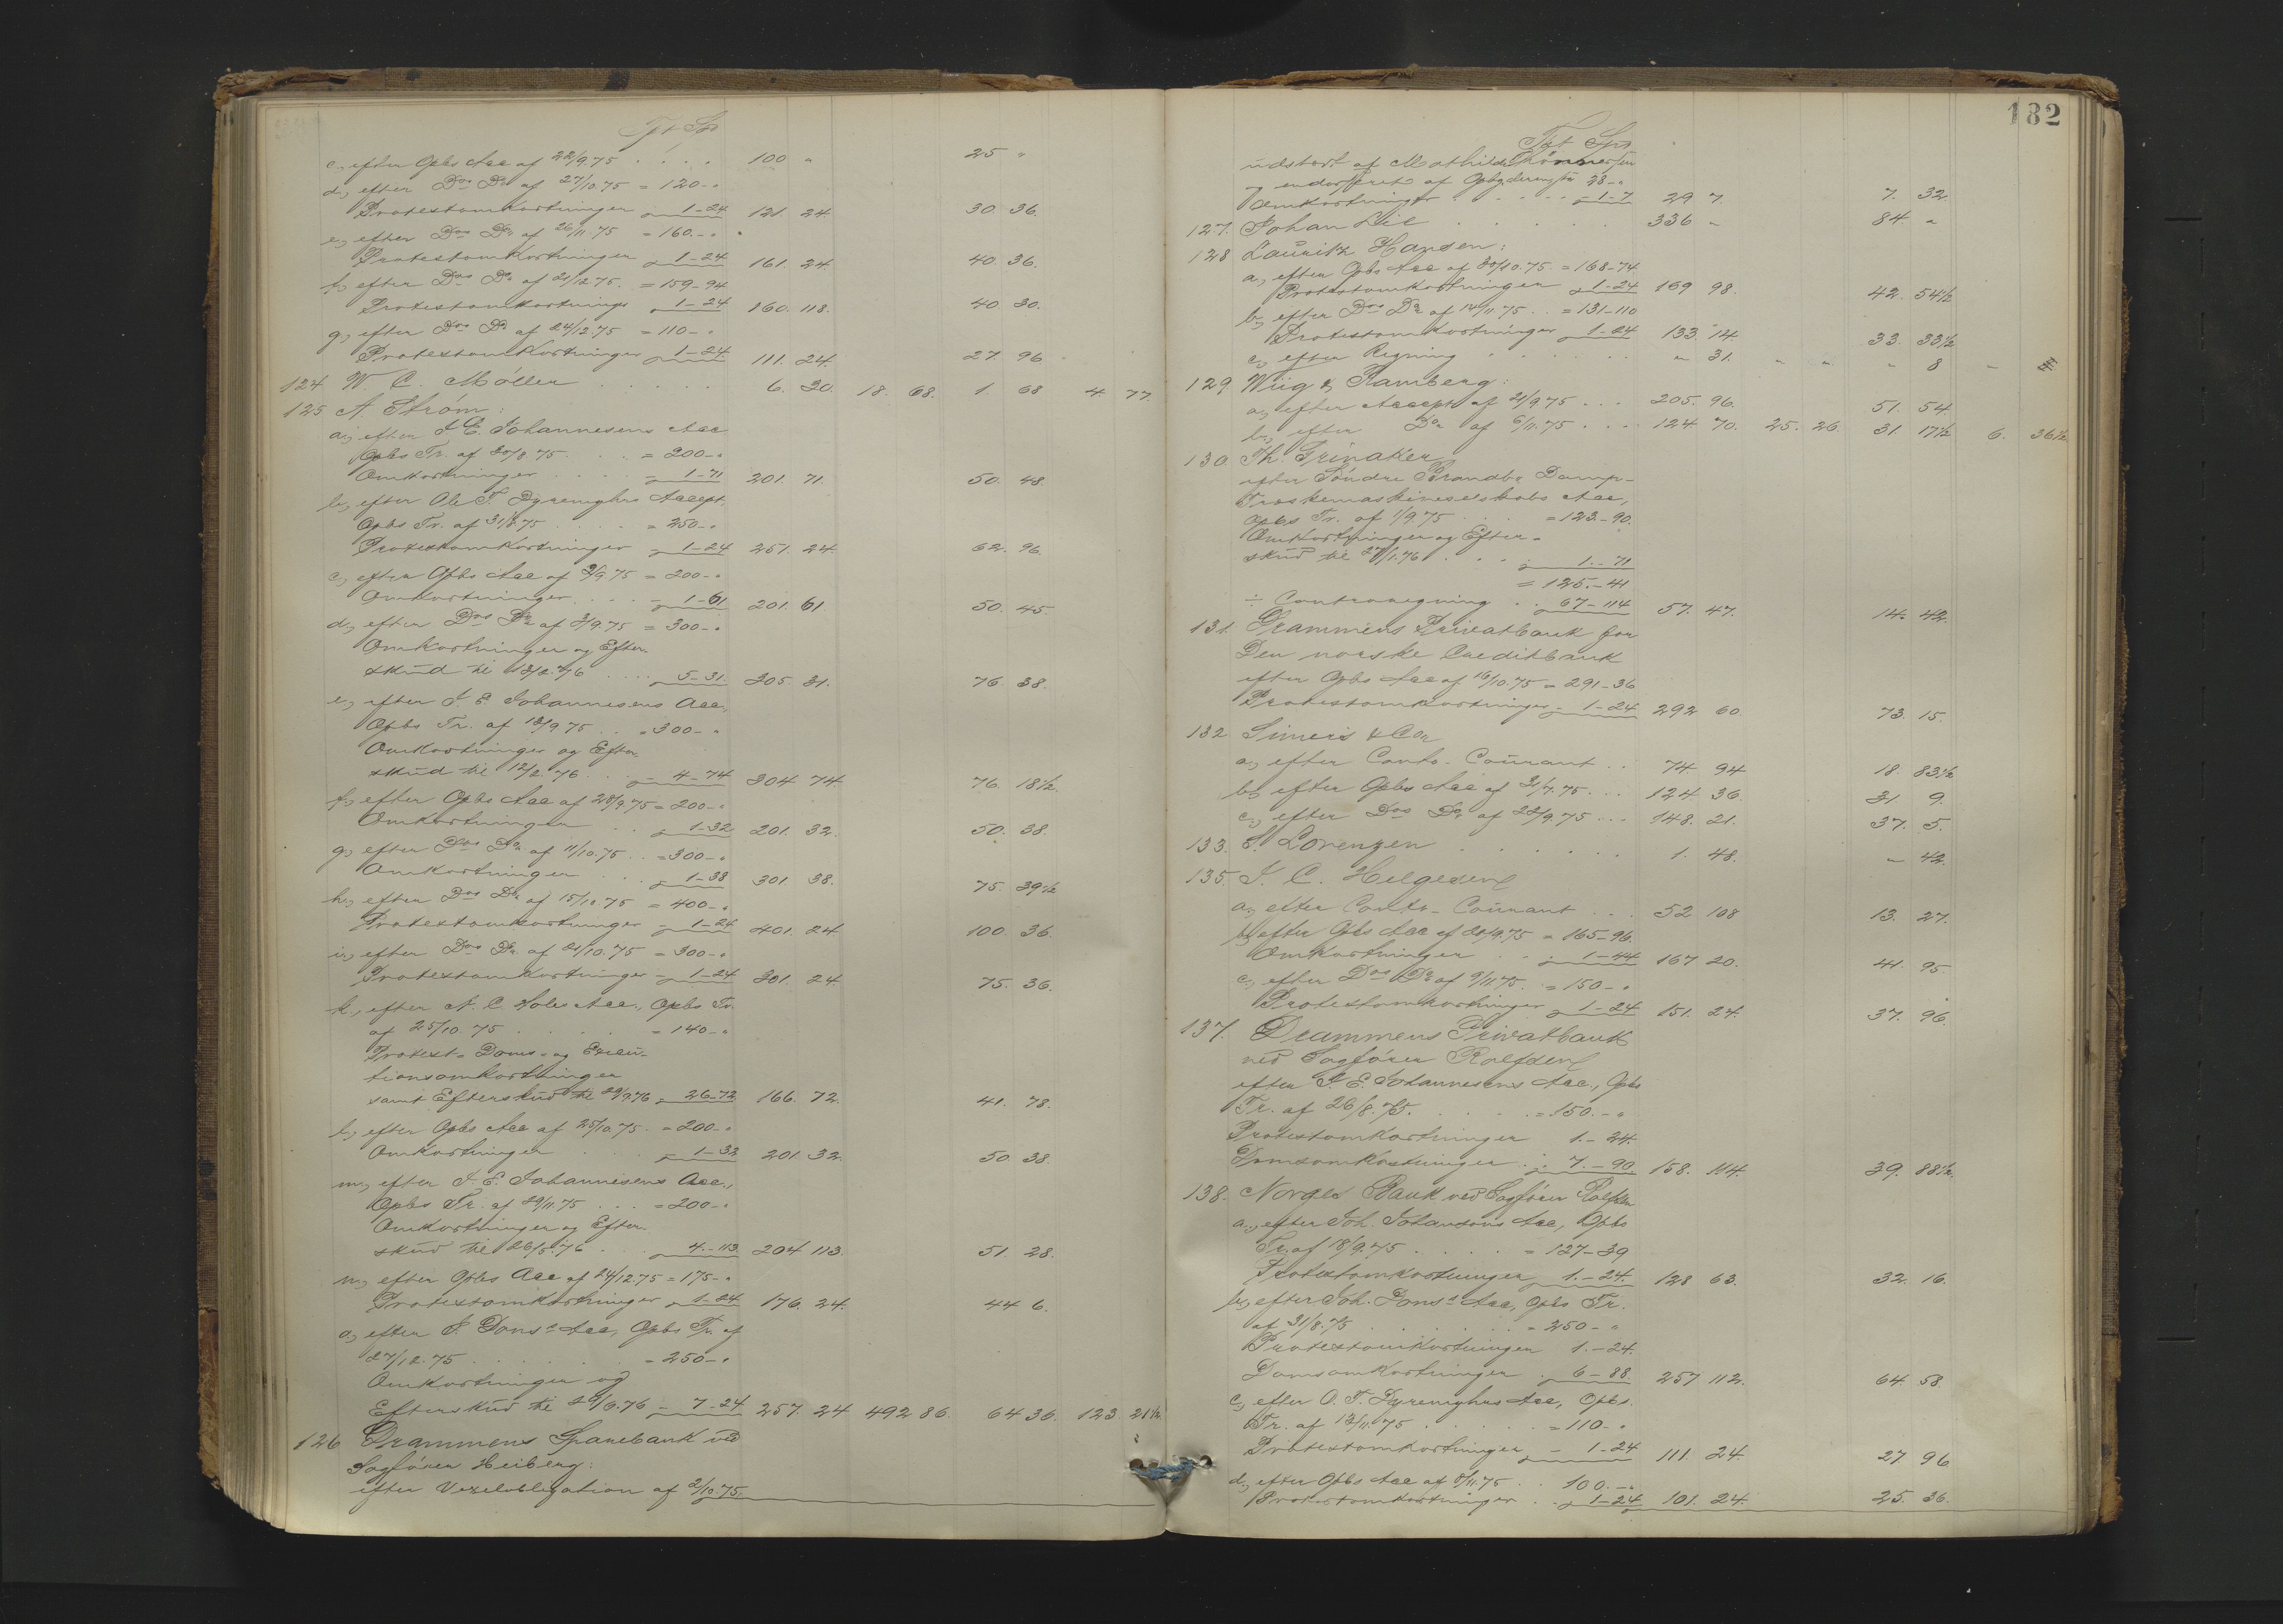 Tpt Sps
c, efter Opbs Acc af 22/9.75 . . . . 100 " 25 "
d, efter Dos Do af 27/10.75 = 120-"
Protestomkostninger 1-24 121. 24. 30. 36.
e, efter Dos Do af 26/11.75 = 160-"
Protestomkostninger 1-24 161. 24. 40. 36.
f, efter Dos Do af 21/12.75. = 159-94
Protestomkostninger 1-24 160. 118. 40. 30.
g, efter Dos Do af 24/12.75 = 110-"
Protestomkostninger 1-24 111. 24. 27. 96
124 W. C. Møller . . . . . 6. 30. 18. 68. 1. 68 4 77.
125 A. Strøm:
a, efter J. E. Johannesens Acc
Opbs Tr. af 20/8 75 . . . = 200-"
Omkostninger . . . . = 1-71 201. 71. 50. 48.
b, efter Ole T. Dyrenghus Accept,
Opbs Tr. af 31/8.75 . . . . = 250-"
Protestomkostninger = 1-24 251. 24. 62. 96.
c, efter Opbs Acc af 2/9 75 = 200-"
Omkostninger . . . . = 1-61 201. 61. 50. 45.
d, efter Dos Do af 3/9.75 = 300-"
Omkostninger og Efter-
skud til 12/2.76 . . . . 5-31 305. 31. 76. 38.
e, efter J. E. Johannesens Acc,
Opbs Tr. af 13/9 75 . . = 300-"
Omkostninger og Efter-
skud til 12/2.76 . . . = 4-74 304 74. 76. 18 1/2.
f, efter Opbs Acc af 28/9.75 = 200-"
Omkostninger . . 1-32 201. 32. 50. 38.
g, efter Dos Do af 11/10.75 . . = 300-"
Omkostninger . . . 1-38 301. 38. 75. 39 1/2
h, efter Dos Do af 15/10 75 = 400-"
Protestomkostninger = 1-24 401. 24. 100. 36.
i, efter Dos Do af 21/10.75 = 300-"
Protestomkostninger = 1-24 301. 24 75. 36.
k, efter A. C. Holes Acc, Opbs Tr.
af 25/10.75 . . . . = 140-"
Protest- Doms- og Execu-
tionsomkostninger
samt Efterskud til 29/9.76 = 26-72 166. 72. 41. 78.
l, efter Opbs Acc af 25/10.75. = 200-"
Omkostninger . . . 1-32 201. 32. 50. 38.
m, efter J. E. Johannesens Acc.,
Opbs Tr. af 29/11.75 . . . = 200-"
Omkostninger og Efter-
skud til 26/5.76 . . 4-113 204 113. 51. 28.
n, efter Opbs Acc af 24/12.75 = 175-"
Protestomkostninger 1-24 176. 24. 44 6.
o, efter J. Dons's Acc, Opbs Tr. af
27/12.75 . . . . . . = 250-"
Omkostninger og
Efterskud til 21/6.76 = 7-24 257. 24 492 86. 64 36. 123 21 1/2.
126 Drammens Sparebank ved
Sagfører Heiberg:
efter Vexelobligation af 2/10.75.
182
Tpt Sps
udstedt af Mathilde Thønnesen
og endosseret af Opbyderen 28-"
Omkostninger . . . . . . 1-7 29 7. 7. 32
127. Johan Lie . . . . . . 336 " 84 "
128 Lauritz Hansen:
a, efter Opbs Acc af 30/10.75. = 168-74
Protestomkostninger 1-24 169 98. 42. 54 1/2
b, efter Dos Do af 14/11.75 . . = 131-110
Protestomkostninger 1-24 133. 14. 33. 33 1/2
c, efter Regning . . . . . . " 31. " " " 8 "
129. Wiig & Ramberg:
a, efter Accept af 21/9.75 . . . 205. 96. 51. 54.
b, efter Do af 6/11.75 . . . 124 70. 25. 26. 31. 17 1/2 6. 36 1/2
130. Th. Trinaker
efter Søndre Brandbo Damp-
Træskemaskineselskabs Acc,
Opbs Tr. af 1/9.75 . . = 123.-90.
Omkostninger og Efter-
skud til 27/1.76 . . . . 1.-71
= 125.-41
÷ Contraregning . . 67-114 57. 47. 14. 42.
131. Drammens Privatbank for
Den norske Creditbank
efter Opbs Acc af 16/10.75 = 291-36
Protestomkostninger = 1-24 292 60. 73. 15.
132 Simers & Co
a, efter Conto-Courant . . 74 94 18. 83 1/2
b, efter Opbs Acc af 31/7.75 . . . 124 36. 31. 9.
c, efter Dos Do af 22/9.75 . . . 148. 21. 37. 5.
133. S. Lorenzen . . . . . . 1. 48. " 42.
135. J. C. Helgesen
a, efter Conto-Courant . . . 52 108 13. 27.
b, efter Opbs Acc af 20/9.75 = 165-96.
Omkostninger . . 1-44 167 20. 41. 95.
c, efter Dos Do af 9/11.75. = 150-"
Protestomkostninger 1-24 151. 24. 37. 96.
137. Drammens Privatbank
ved Sagfører Rolfsen
efter J. E. Johannesens Acc., Opbs
Tr. af 26/8.75. . . . . = 150.-"
Protestomkostninger 1.-24.
Domsomkostninger . . 7.-90. 158. 114. 39. 88 1/2.
138. Norges Bank ved Sagfører Rolfsen
a, efter Joh. Johansons Acc, Opbs
Tr. af 18/9.75 . . . . = 127-39
Protestomkostninger 1.-24. 128 63. 32. 16.
b, efter Joh. Dons's Acc, Opbs Tr.
af 31/8.75 . . . . . = 250-"
Protestomkostninger 1.-24.
Domsomkostninger 6-88. 257 112. 64. 58.
c, efter O. T. Dyrenghus Acc, Opbs.
Tr. af 13/11.75 . . . . = 110-"
Protestomkostninger = 1-24 111. 24. 27 96
d, efter Opbs Acc af 8/11.75 . . 100.-"
Protestomkostninger . . 1-24 101. 24. 25. 36.